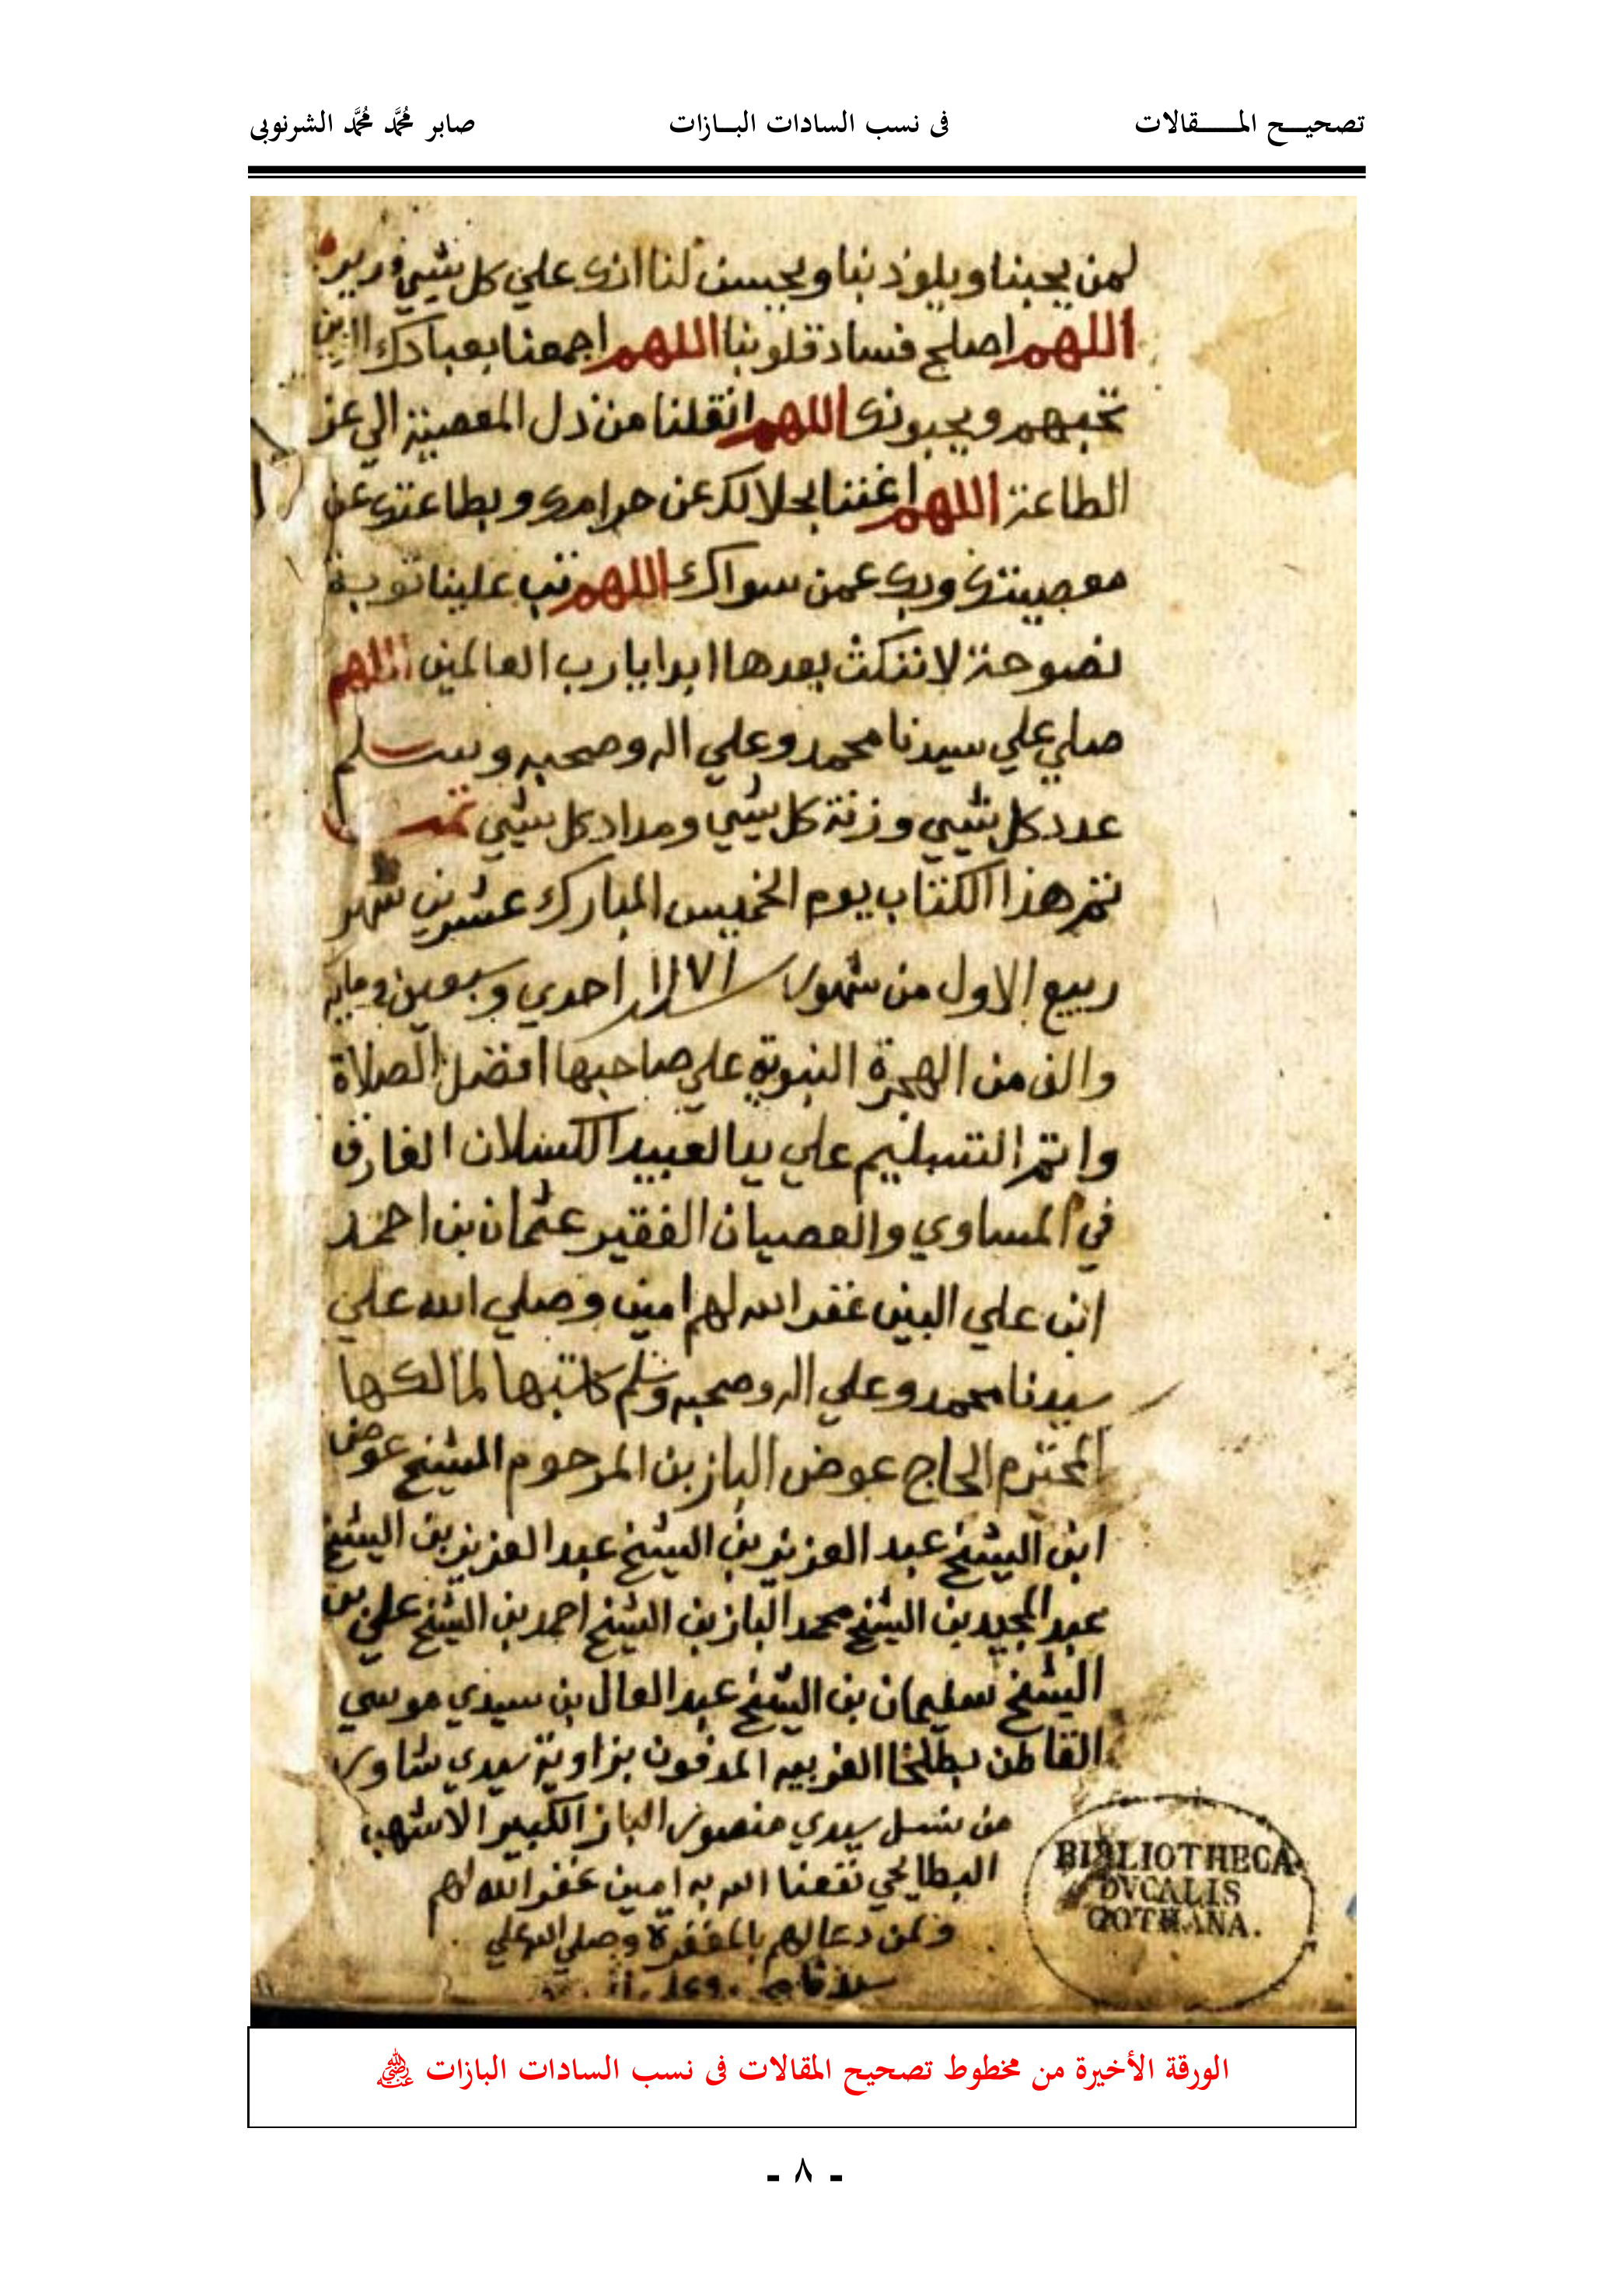 تصحيح المقالات فى نسب السادات البازات صابر مُحَمَّد مُحَمَّد الشرنوبى
لمن يحبنا ويلوذ بنا ويحسن لنا انك علي كل شيي قدير
اللهم اصلح فساد قلوبنا اللهم اجمعنا بعبادك الذين
تحبهم ويحبونك اللهم انقلنا من ذل المعصية الي عز
الطاعة اللهم اغننا بحلالك عن حرامك وبطاعتك عن
معصيتك وبك عمن سواك اللهم تب علينا توبة
نصوحة لا ننكث بعدها ابدا يا رب العالمين اللهم
صلي علي سيدنا محمد وعلي اله وصحبه وسلم
عدد كل شيي وزنة كل شيي ومداد كل شيي تمت
تم هذا الكتاب يوم الخميس المبارك عشرين شهر
ربيع الاول من شهور سنة ١١٧١ احدي وسبعين وماية
والف من الهجرة النبوية علي صاحبها افضل الصلاة
واتم التسليم علي يد العبيد الكسلان الغارق
في المساوي والعصيان الفقير عثمان بن احمد
ابن علي البين غفر الله لهم امين وصلي الله علي
سيدنا محمد وعلي اله وصحبه وسلم كاتبها لمالكها
المحترم الحاج عوض الباز بن المرحوم الشيخ عوض
ابن الشيخ عبد العزيز بن الشيخ عبد العزيز بن الشيخ
عبد المجيد بن الشيخ محمد الباز بن الشيخ احمد بن الشيخ علي بن
الشيخ سليمان بن الشيخ عبد العال بن سيدي موسي
القاطن بطلخا الغربيه المدفون بزاوية سيدي شاور
من نسل سيدي منصور الباز الكبير الاشهب
البطايحي نفعنا الله به امين غفر الله لهم
ولمن دعا لهم بالمغفرة وصلي الله علي
BIBLIOTHECA
DVCALIS
GOTHANA.
الورقة الأخيرة من مخطوط تصحيح المقالات فى نسب السادات البازات
- ٨ -